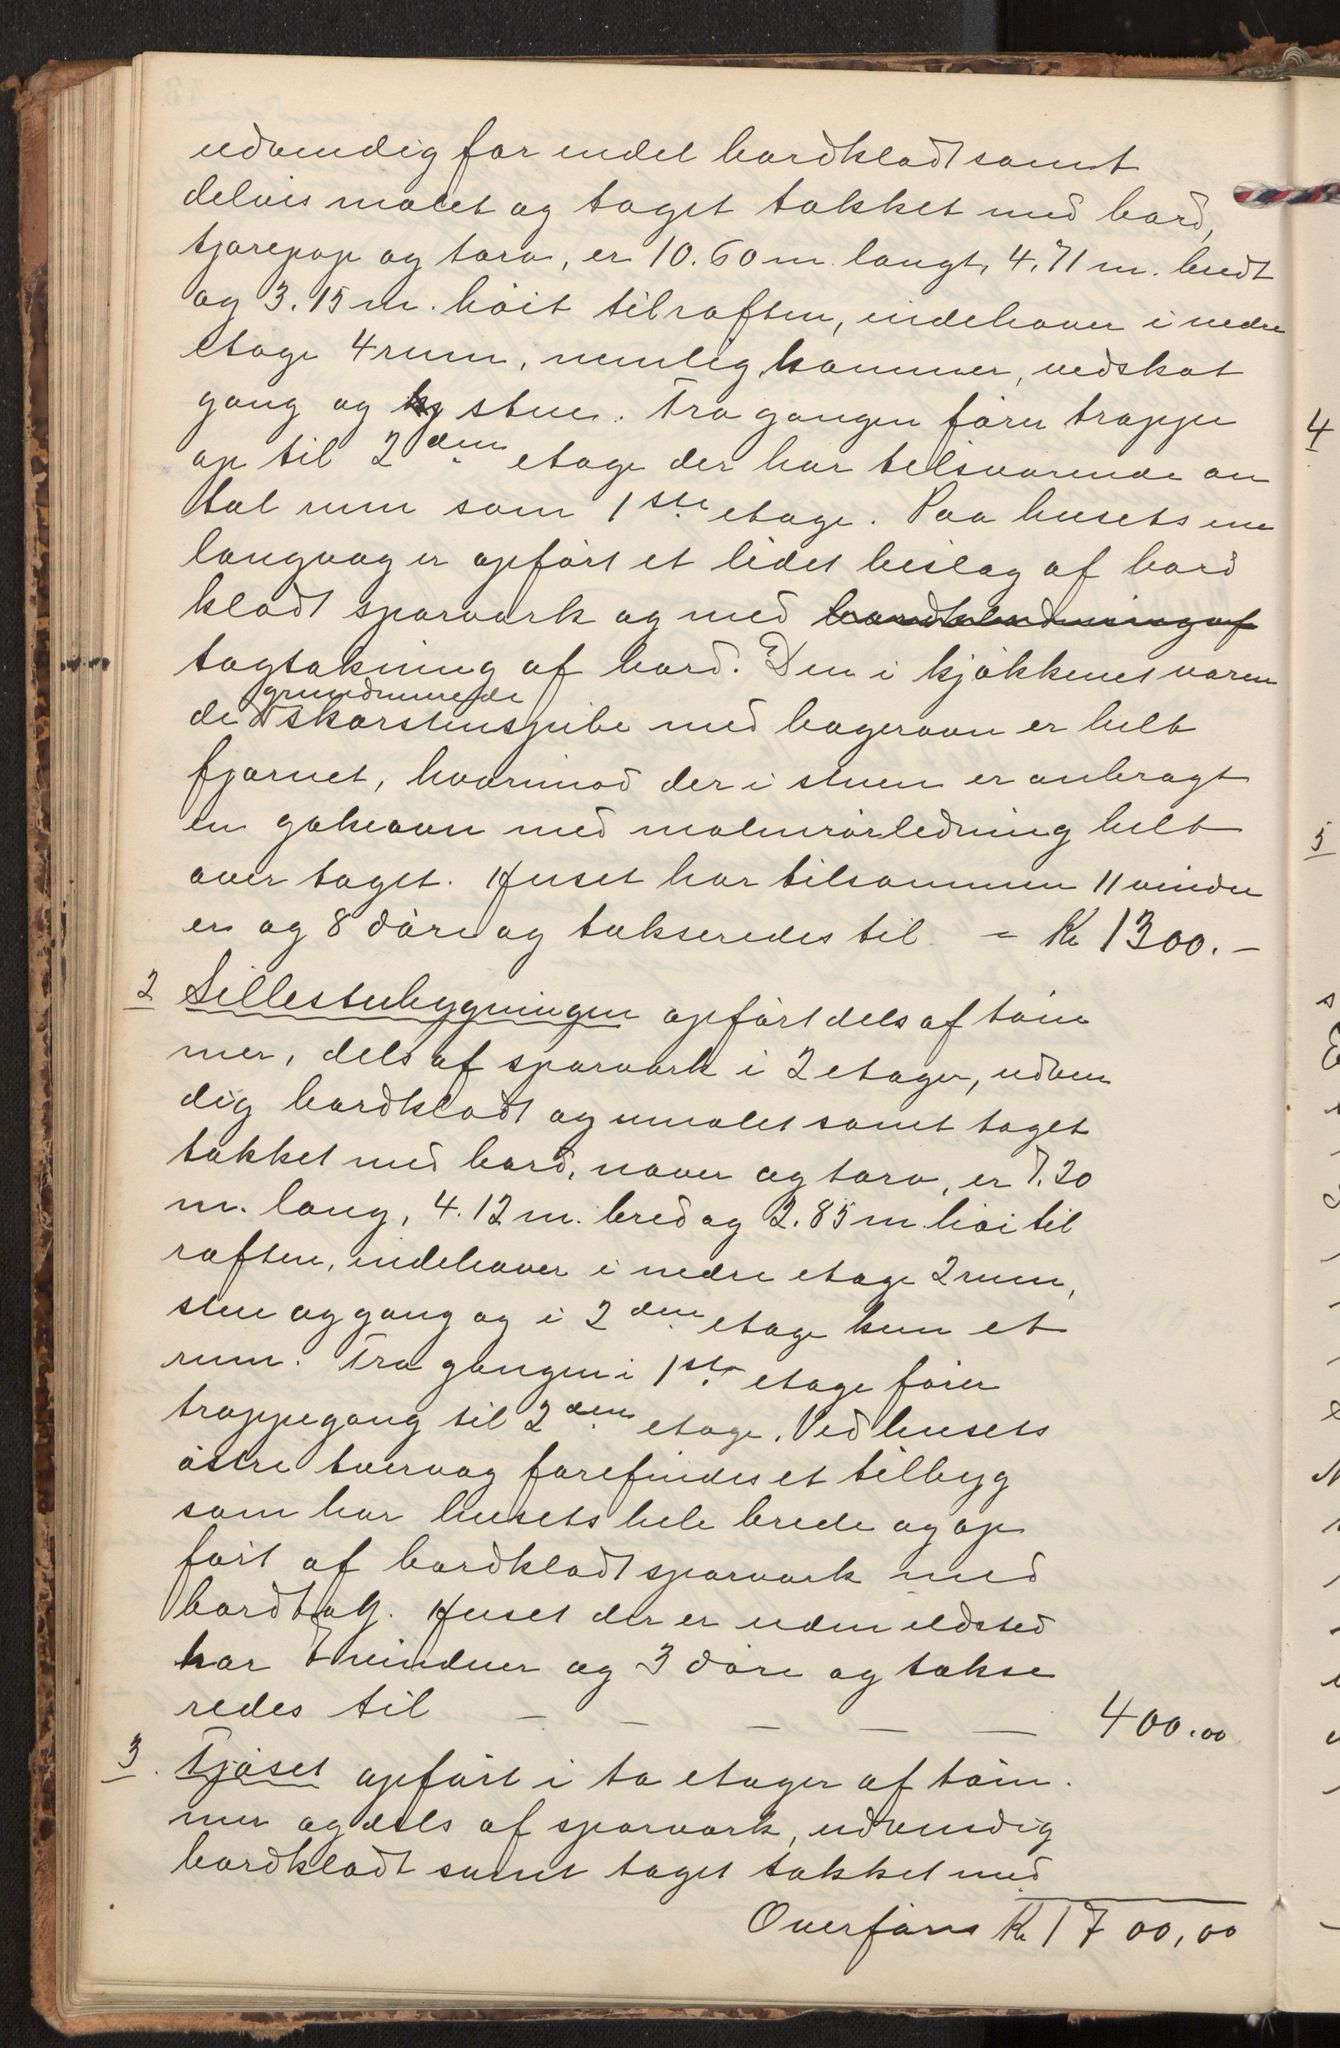 udvendig for endel bordklædt samt
delvis malet og taget tækket med bord,
tjærepap og torv, er 10.60 m. langt, 4.71 m. bredt
og 3.15 m. höit til raften, indehaver i nedre
etage 4 rum, nemlig kammer, vedskot
gang og stue. Fra gangen förer trappe
op til 2den etage der har tilsvarende an
tal rum som 1ste etage. Paa husets ene
langvæg er opfört et lidet bislag af bord
klædt sparværk og med bordklædning af
tagtækning af bord. Den i kjökkenet væren
de grundmurede skorstenspibe med bagerovn er helt
fjernet, hvorimod der i stuen er anbragt
en gokeovn med malmrörledning helt
over taget. Huset har tilsammen 11 vindu
er og 8 döre og takseredes til - Kr 1300.-
2 Lillestubygningen opfört dels af töm
mer, dels af sparværk i 2 etager, udven
dig bordklædt og umalet samt taget
tækket med bord, næver og torv, er 7.20
m. lang, 4.12 m. bred og 2.85 m höi til
raften, indehaver i nedre etage 2 rum,
stue og gang og i 2den etage kun et
rum. Fra gangen i 1ste etage förer
trappegang til 2den etage. Ved husets
östre tvervæg forefindes et tilbyg
som har husets hele brede og op
fört af bordklædt sparværk med
bordtag. Huset der er uden ildsted
har 7 vinduer og 3 döre og takse
redes til - - - - - 400.00
3. Fjöset opfört i to etager af töm
mer og dels af sparværk, udvendig
bordklædt samt taget tækket med
Overföres Kr 1700,00
4
5